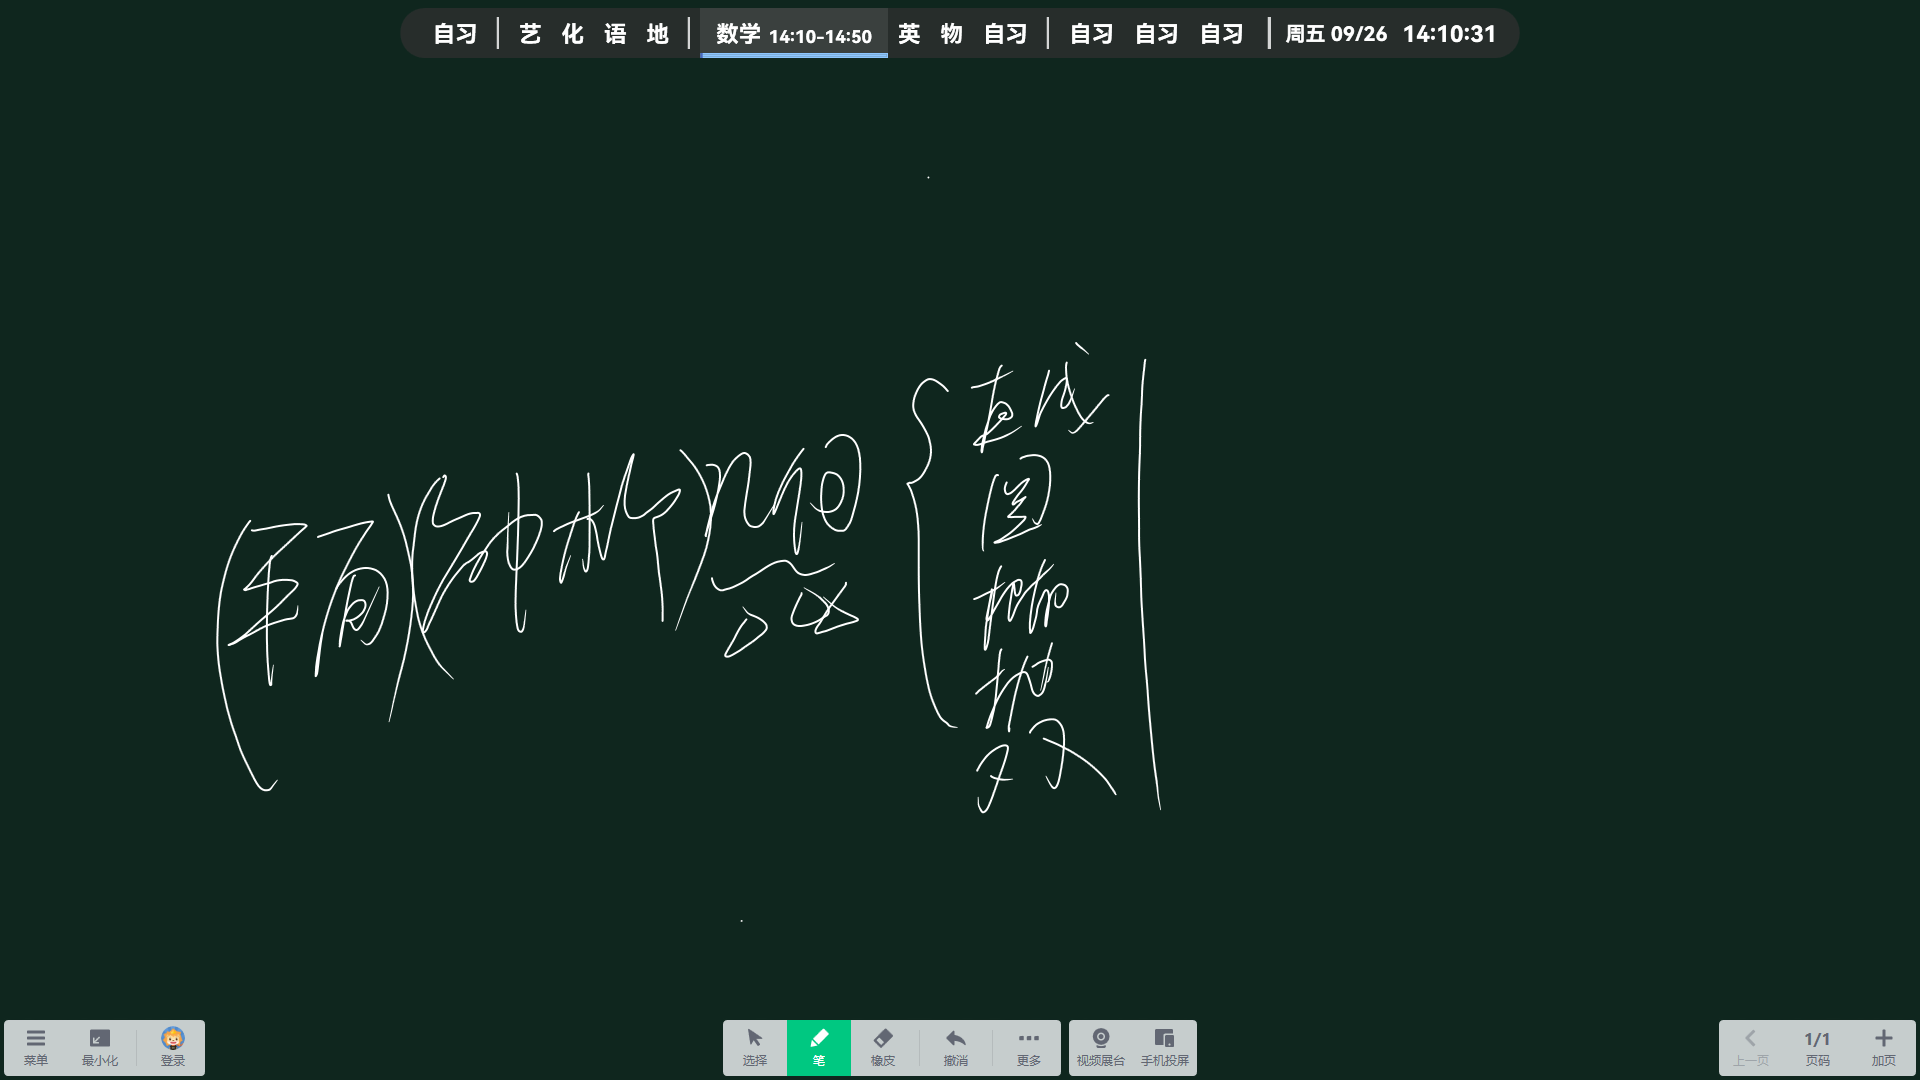 自习 | 艺 化 语 地 | 数学 14:10-14:50 英 物 自习 | 自习 自习 自习 | 周五 09/26 14:10:31
(平面)(解析)几何
直线
圆
椭
抛
双
菜单 最小化 登录 选择 笔 橡皮 撤消 更多 视频展台 手机投屏 上一页 1/1 页码 加页